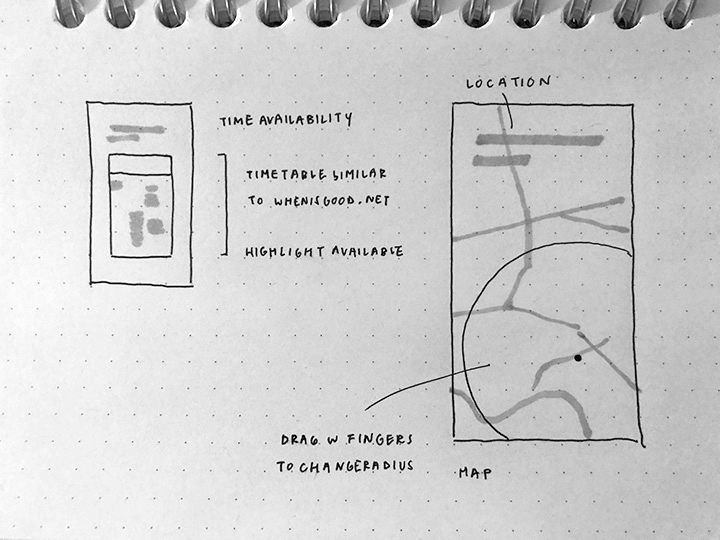 TIME AVAILABILITY
TIMETABLE SIMILAR
TO WHENISGOOD.NET
HIGHLIGHT AVAILABLE
LOCATION
DRAG W FINGERS
TO CHANGE RADIUS
MAP